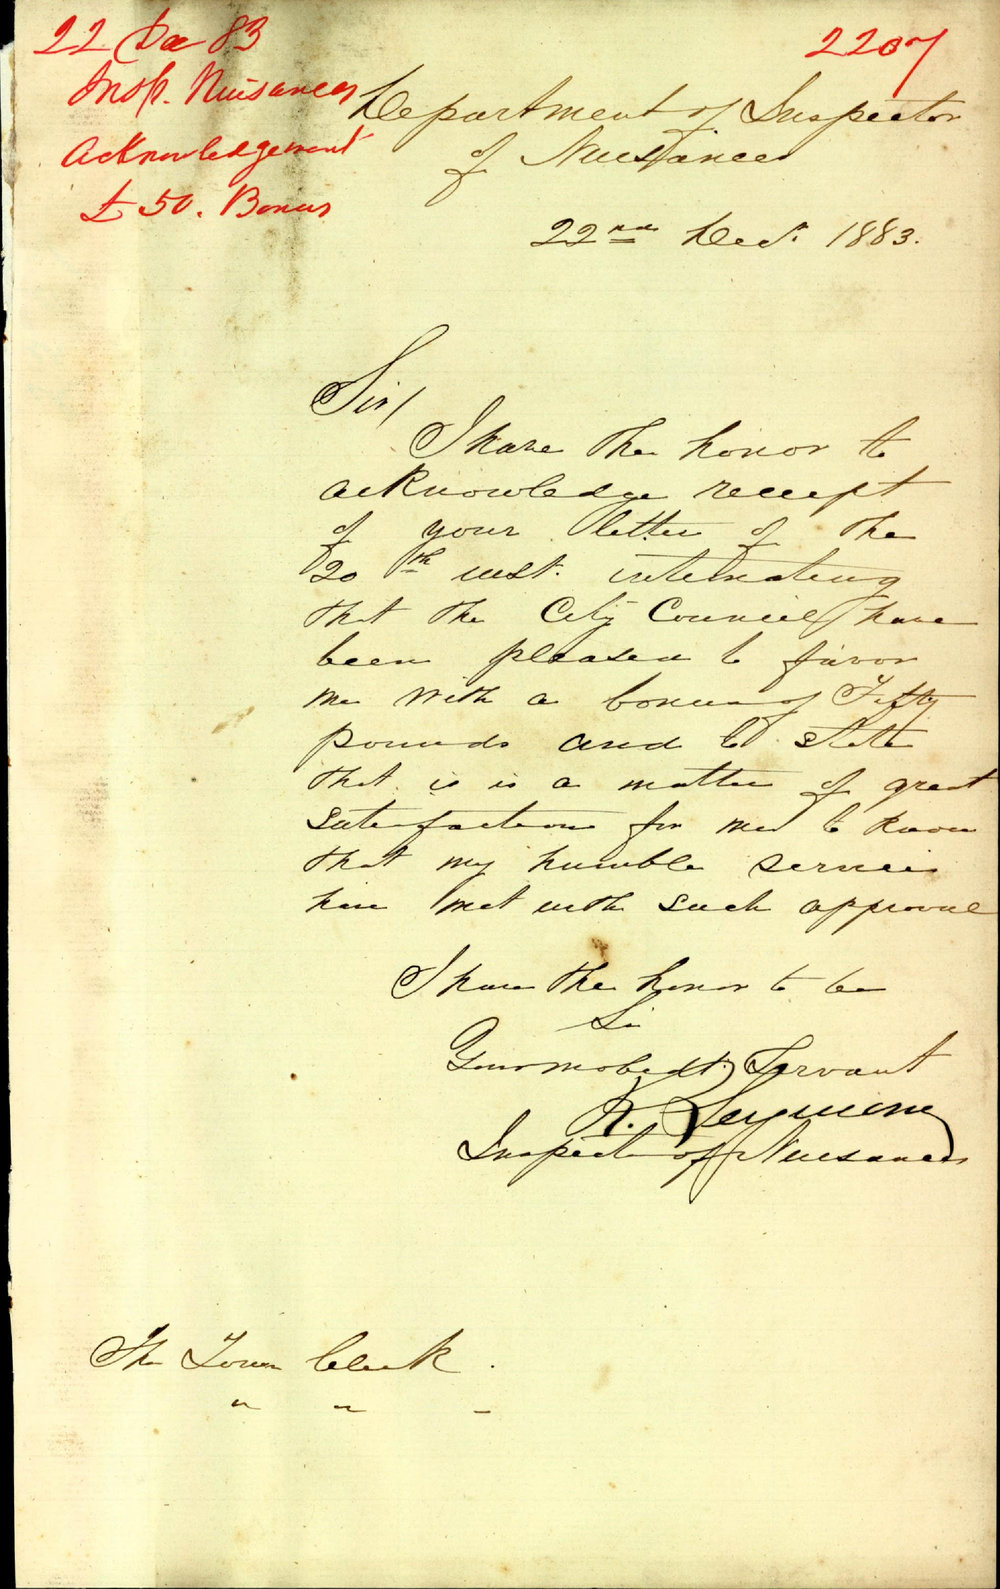 22 Dec 83
2207
Insp. Nuisances
Acknowledgement
£50. Bonus
Department of Inspector
of Nuisances
22nd Decr. 1883.
Sir/
I have the honor to
acknowledge receipt
of your letter of the
20th inst. intimating
that the City Council have
been pleased to favor
me with a bonus of Fifty
pounds and to state
that is is a matter of great
satisfaction for me to know
that my humble services
have met with such approval
I have the honor to be
Sir
Your mo bedt. Servant
R. Seymour
Inspector of Nuisances
The Town Clerk.
" " -